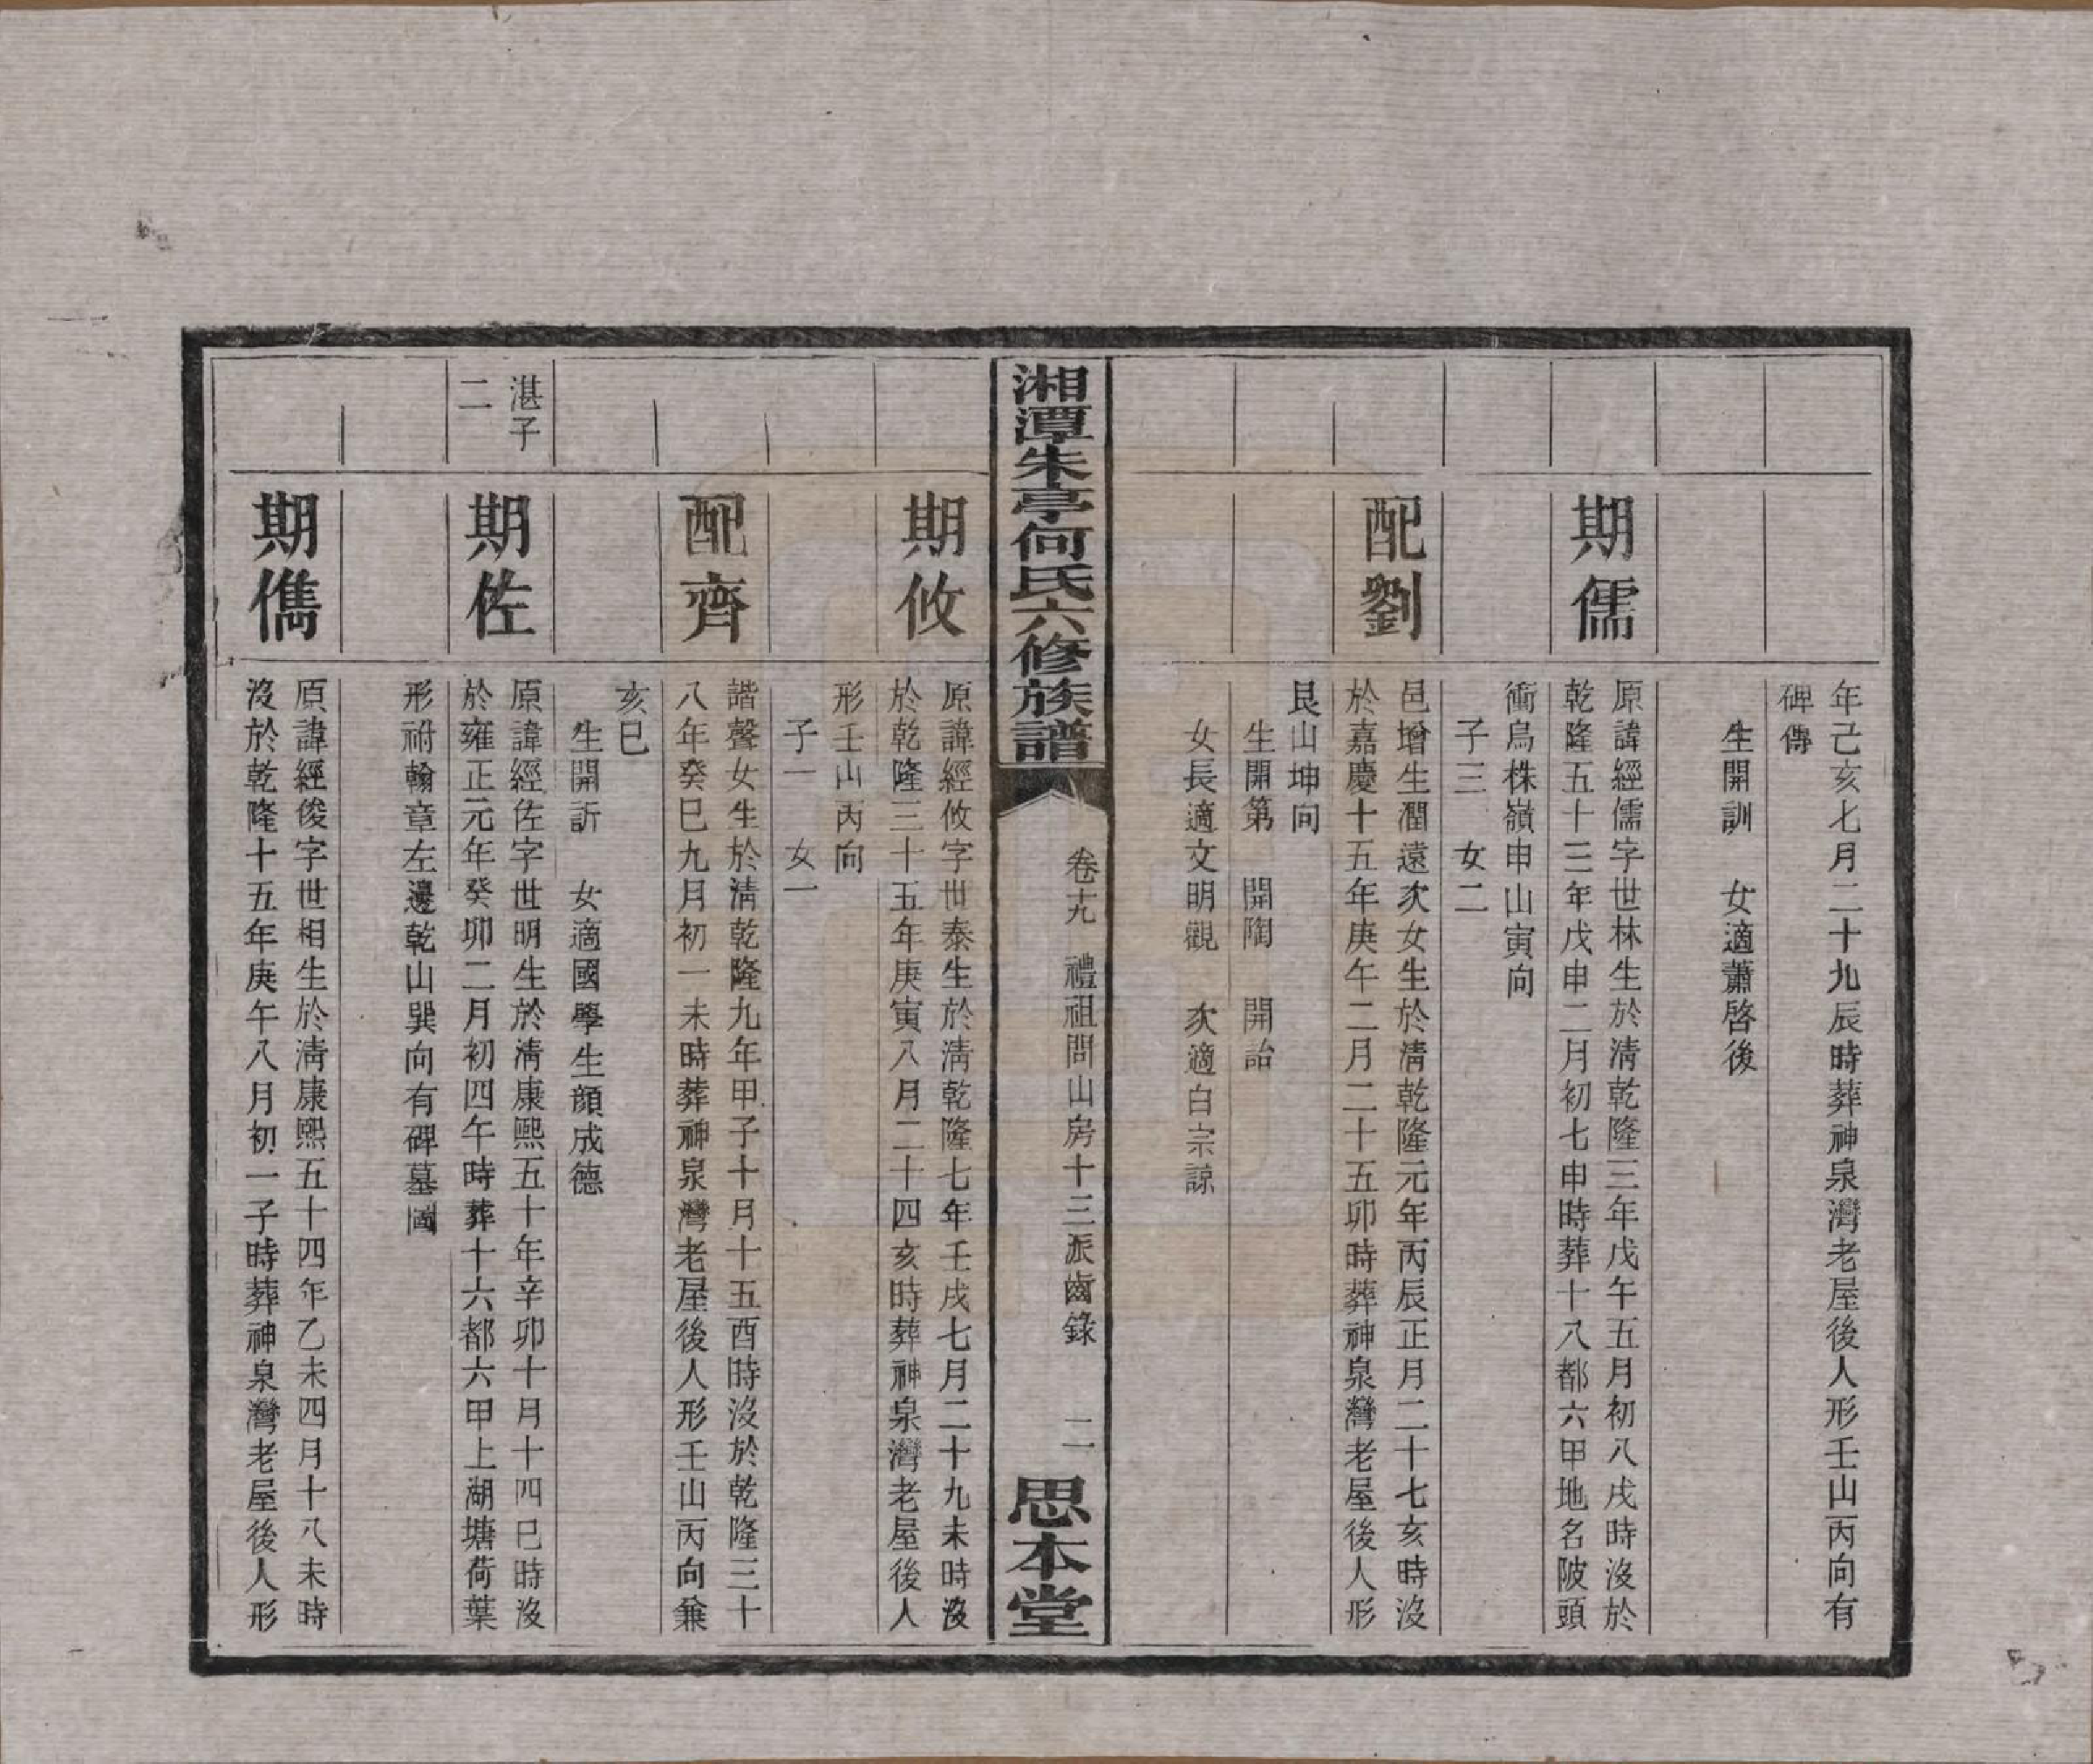 年己亥七月二十九辰時葬神泉灣老屋後人形壬山丙向有
碑傳
生開訓　女適蕭啓後
期儒
原諱經儒字世林生於清乾隆三年戊午五月初八戌時沒於
乾隆五十三年戊申二月初七申時葬十八都六甲地名陂頭
衝烏株嶺申山寅向
子三　女二
配劉
邑增生潤遠次女生於清乾隆元年丙辰正月二十七亥時沒
於嘉慶十五年庚午二月二十五卯時葬神泉灣老屋後人形
艮山坤向
生開第　開陶　開詒
女長適文明觀　次適白宗諒
湘潭朱亭何氏六修族譜
卷十九　禮祖問山房十三派齒錄　二
思本堂
期攸
原諱經攸字世泰生於清乾隆七年壬戌七月二十九未時沒
於乾隆三十五年庚寅八月二十四亥時葬神泉灣老屋後人
形壬山丙向
子一　女一
配齊
諧聲女生於清乾隆九年甲子十月十五酉時沒於乾隆三十
八年癸巳九月初一未時葬神泉灣老屋後人形壬山丙向兼
亥巳
生開訢　女適國學生顏成德
湛子
二
期佐
原諱經佐字世明生於清康熙五十年辛卯十月十四巳時沒
於雍正元年癸卯二月初四午時葬十六都六甲上湖塘荷葉
形祔翰章左邊乾山巽向有碑墓圖
期儁
原諱經俊字世相生於清康熙五十四年乙未四月十八未時
沒於乾隆十五年庚午八月初一子時葬神泉灣老屋後人形